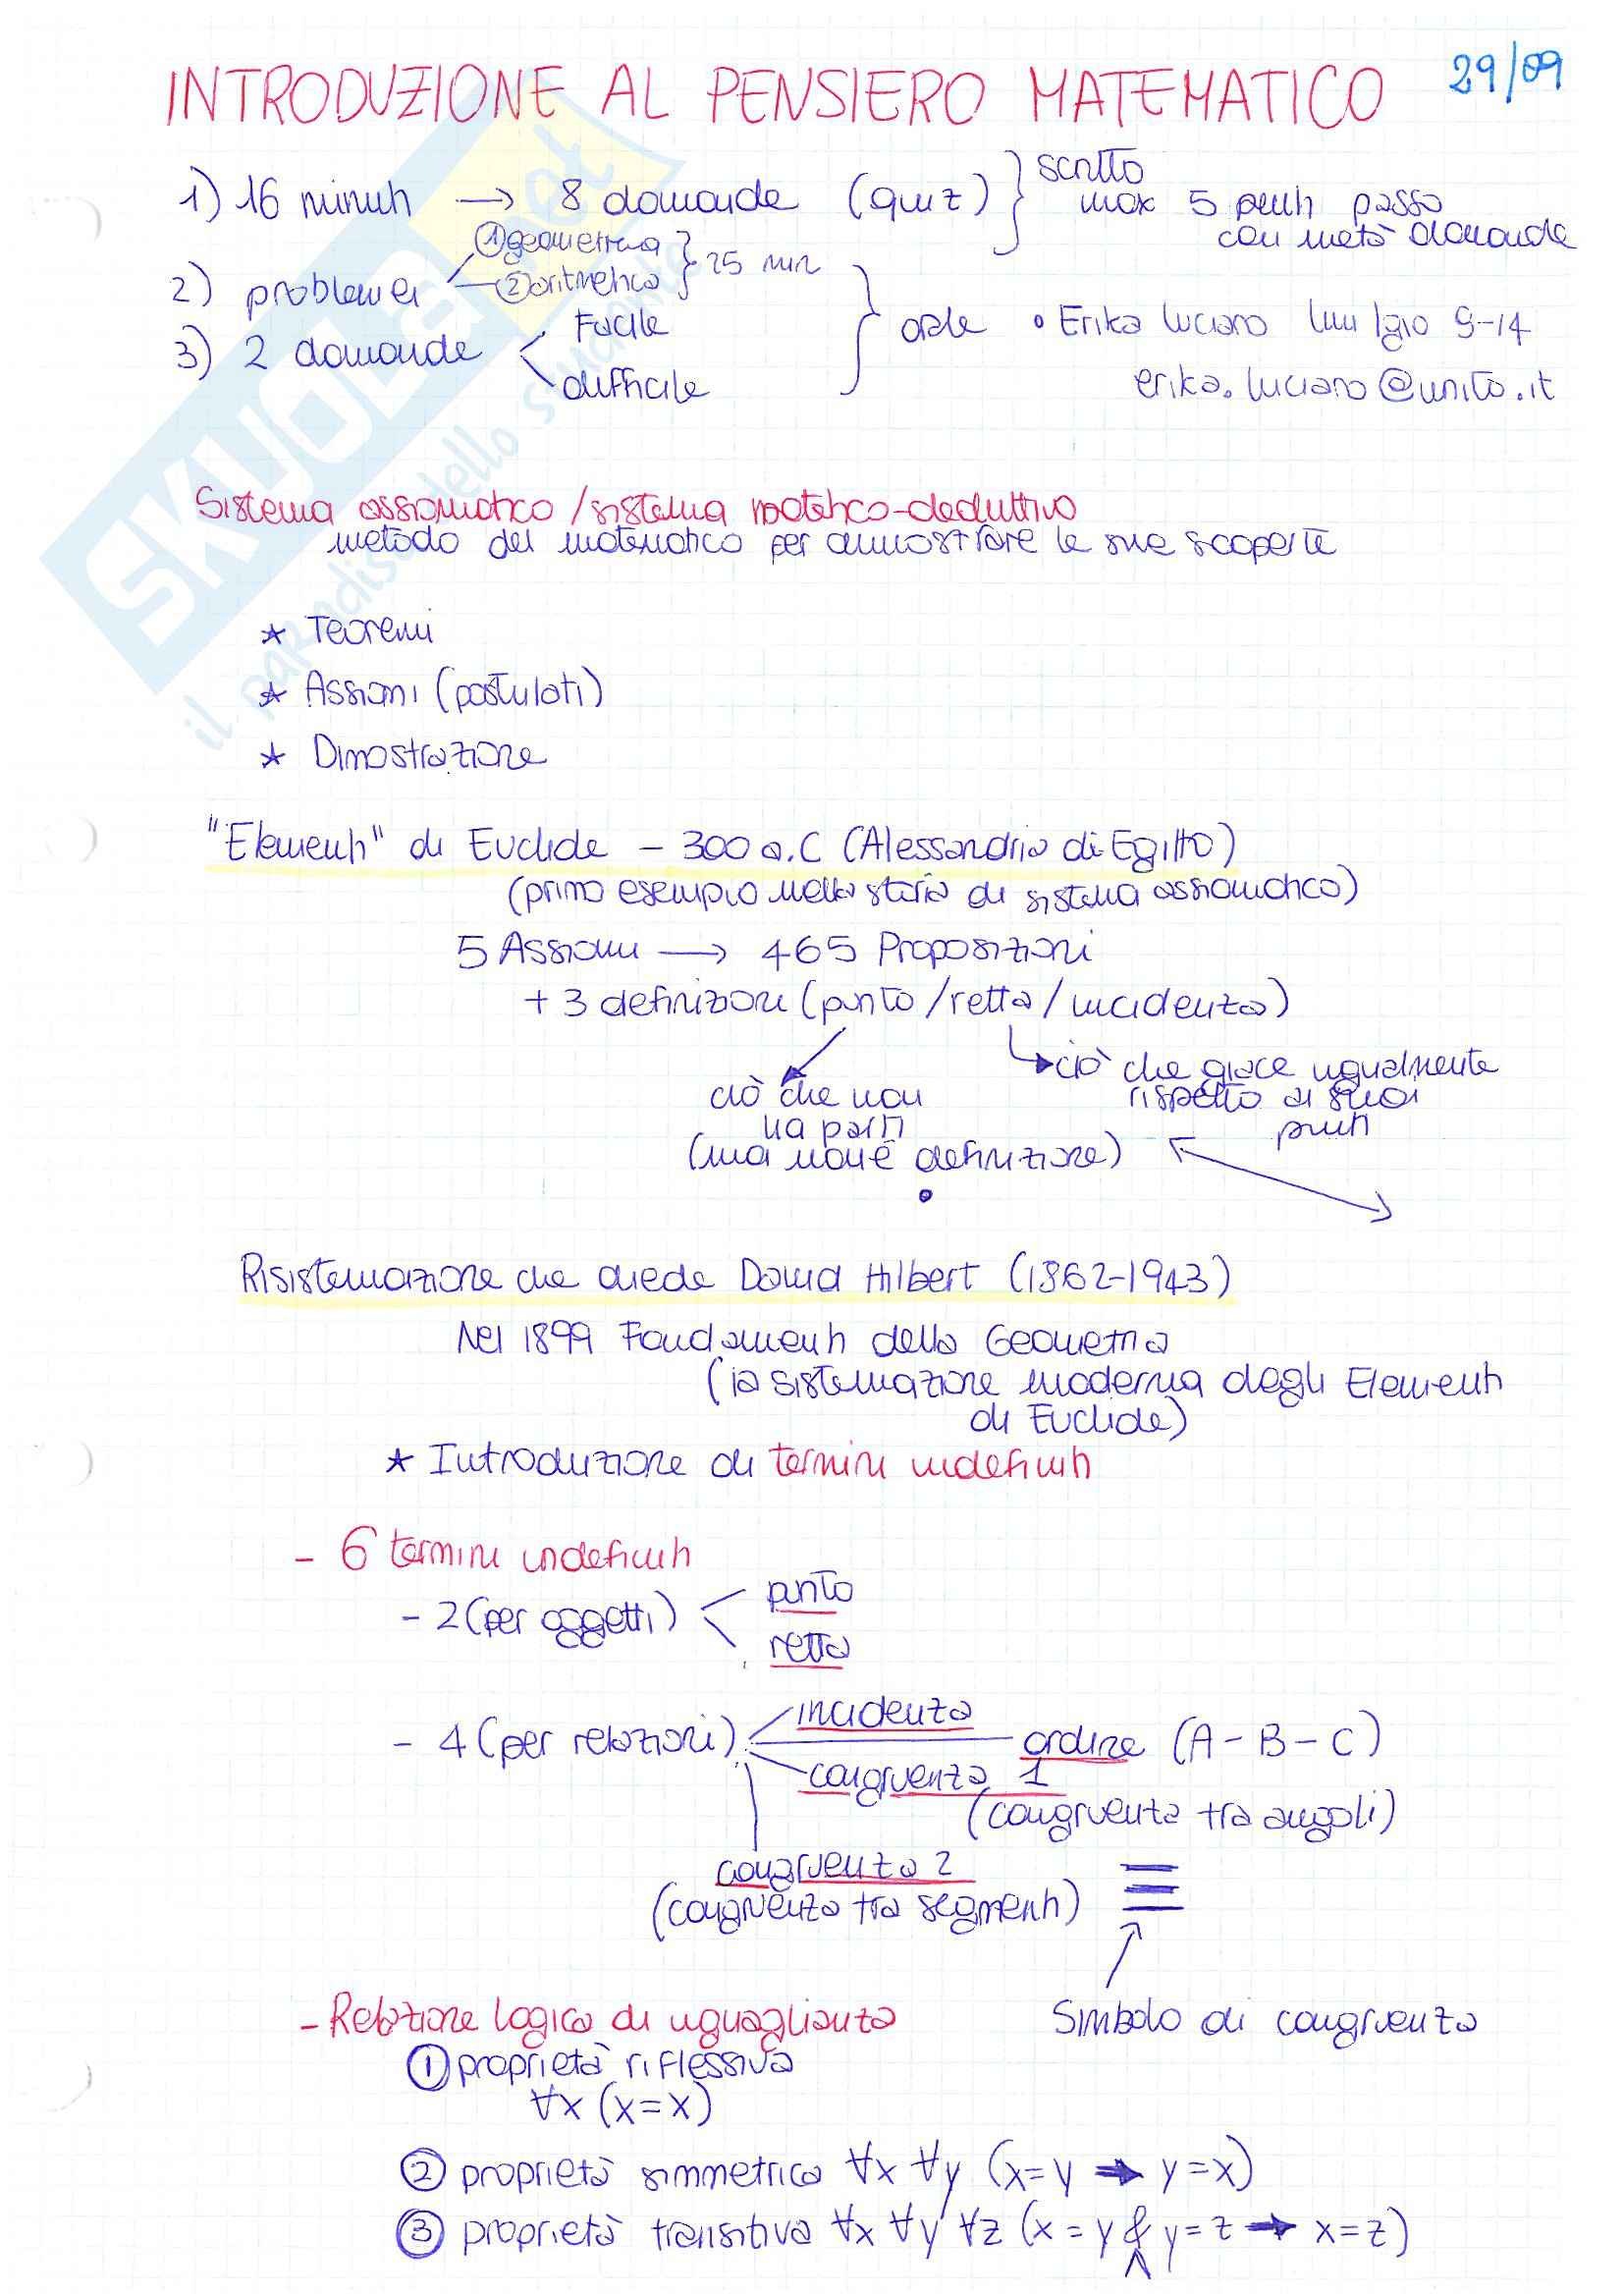 INTRODUZIONE AL PENSIERO MATEMATICO 29/09
1) 16 minuti → 8 domande (quiz) } scritto
max 5 punti passo
con metà domande
① geometria
2) problema ② aritmetico } 25 min
3) 2 domande Facile
difficile
} orale • Erika Luciano 9-14
erika.luciano@unito.it
Sistema assiomatico / sistema ipotetico-deduttivo
metodo del matematico per dimostrare le sue scoperte
* Teoremi
* Assiomi (postulati)
* Dimostrazione
"Elementi" di Euclide - 300 a.C (Alessandria di Egitto)
(primo esempio nella storia di sistema assiomatico)
5 Assiomi → 465 Proposizioni
+ 3 definizioni (punto / retta / incidenza)
ciò che non
ha parti
(ma non è definizione)
ciò che giace ugualmente
rispetto ai suoi
punti
Risistemazione che diede David Hilbert (1862-1943)
Nel 1899 Fondamenti della Geometria
(la sistemazione moderna degli Elementi
di Euclide)
* Introduzione di termini indefiniti
- 6 termini indefiniti
- 2 (per oggetti) punto
retta
- 4 (per relazioni) incidenza
ordine (A - B - C)
congruenza 1
(congruenza tra angoli)
congruenza 2
(congruenza tra segmenti) ≡
- Relazione logica di uguaglianza
Simbolo di congruenza
① proprietà riflessiva
∀x (x=x)
② proprietà simmetrica ∀x ∀y (x=y → y=x)
③ proprietà transitiva ∀x ∀y ∀z (x=y & y=z → x=z)
∧
SKUOLA.net
il paradiso dello studente